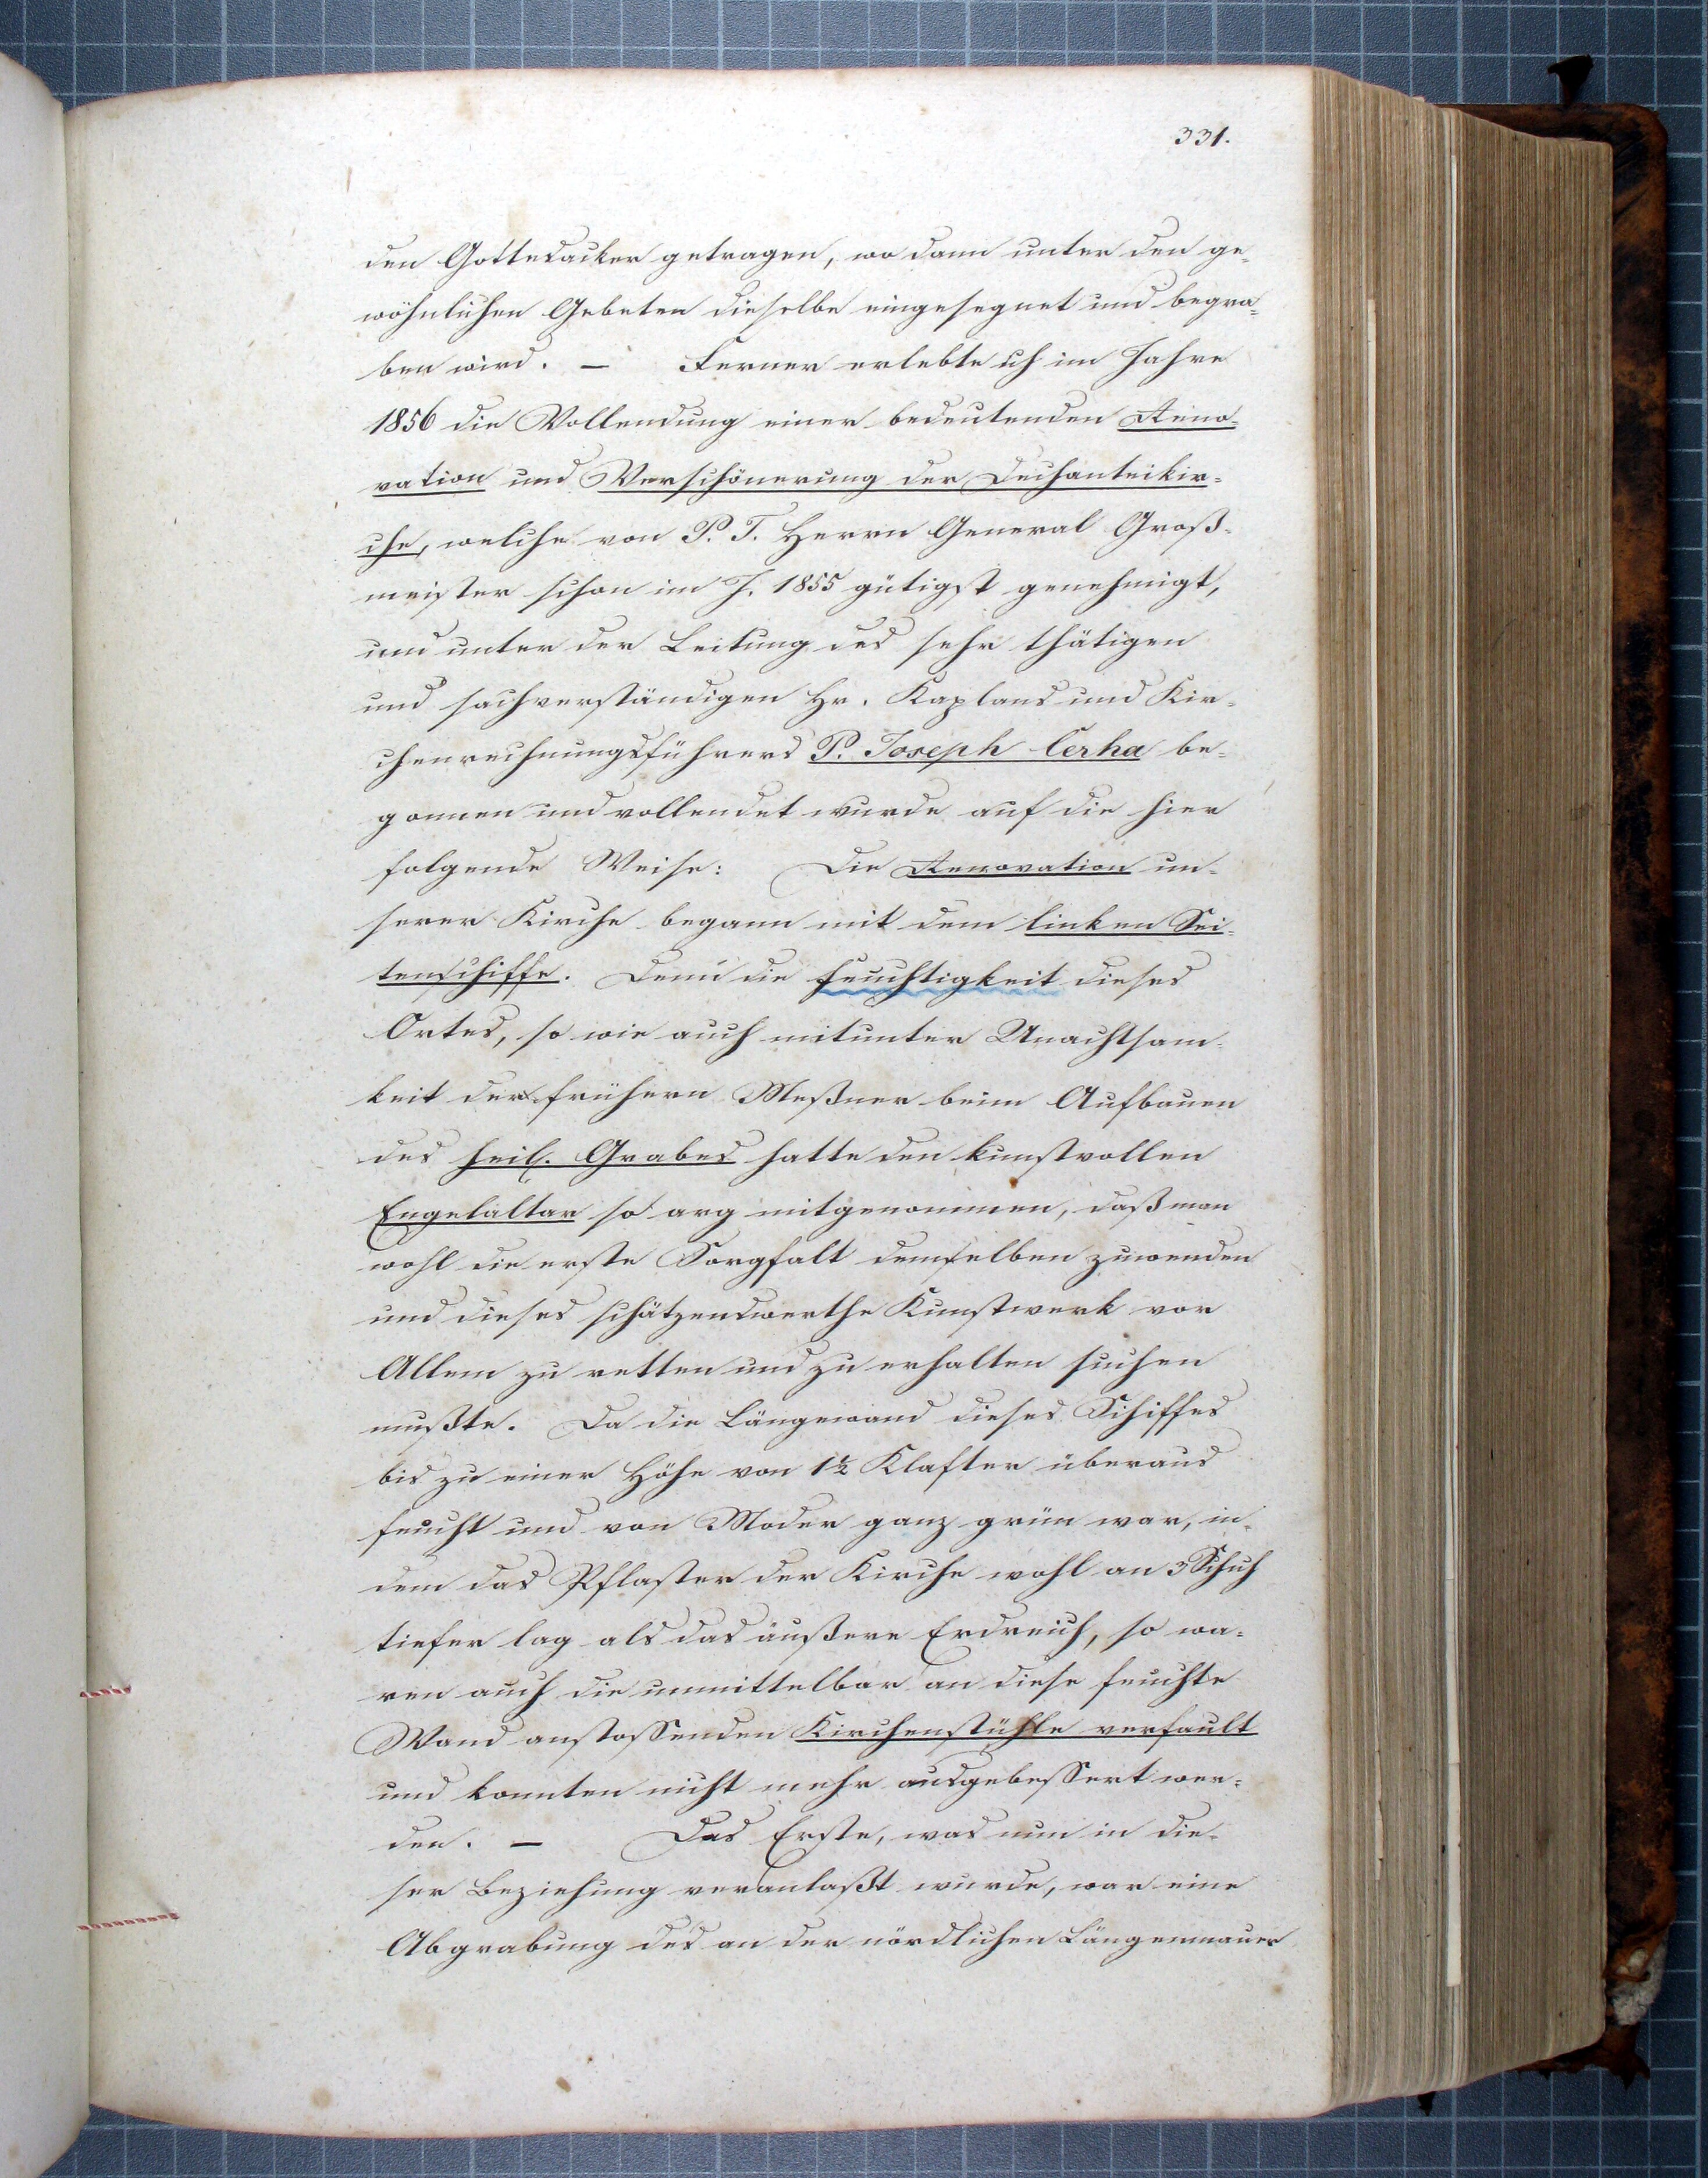 331.
den Gottesacker getragen, wo dann unter den ge-
wöhnlichen Gebeten dieselbe eingesegnet und begra-
ben wird. — Ferner erlebte ich im Jahre
1856 die Vollendung einer bedeutenden Reno-
vation und Verschönerung der Dechanteikir-
che, welche von P. T. Herrn General Groß-
meister schon im J. 1855 gütigst genehmigt,
und unter der Leitung des sehr thätigen
und sachverständigen Hr. Kaplans und Kir-
chenrechnungsführers P. Joseph Cerha be-
gonnen und vollendet wurde auf die hier
folgende Weise: Die Renovation un-
serer Kirche begann mit dem linken Sei-
tenschiffe. Denn die Feuchtigkeit dieses
Ortes, so wie auch mitunter Unachtsam-
keit der frühern Meßner beim Aufbauen
des heil. Grabes hatte den kunstvollen
Engelaltar so arg mitgenommen, daß man
wohl die erste Sorgfalt demselben zuwenden
und dieses schätzenswerthe Kunstwerk vor
Allem zu retten und zu erhalten suchen
mußte. Da die Längewand dieses Schiffes
bis zu einer Höhe von 1½ Klafter überaus
feucht und von Moder ganz grün war, in-
dem das Pflaster der Kirche wohl an 3 Schuh
tiefer lag als das äußere Erdreich, so wa-
ren auch die unmittelbar an diese feuchte
Wand anstossenden Kirchenstühle verfault
und konnten nicht mehr ausgebessert wer-
den. — Das Erste, was nun in die-
ser Beziehung veranlaßt wurde, war eine
Abgrabung des an der nördlichen Längenmauer